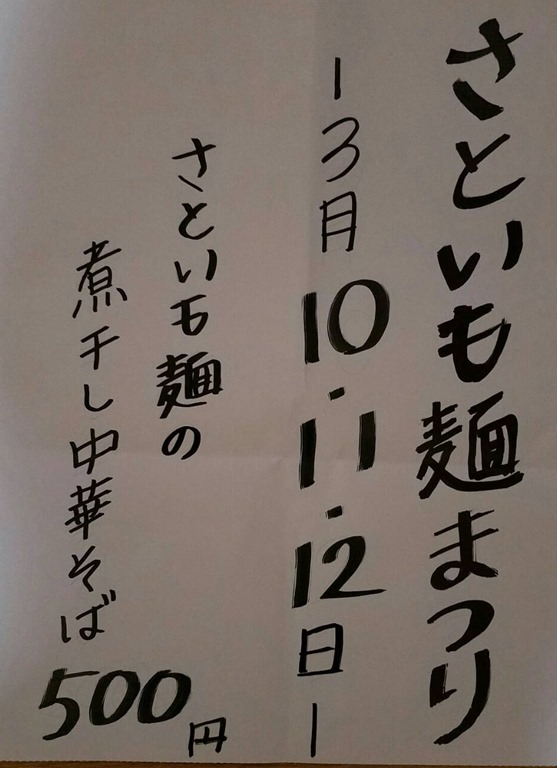 さといも麺まつり
ー3月10.11.12日ー
さといも麺の
煮干し中華そば
500円